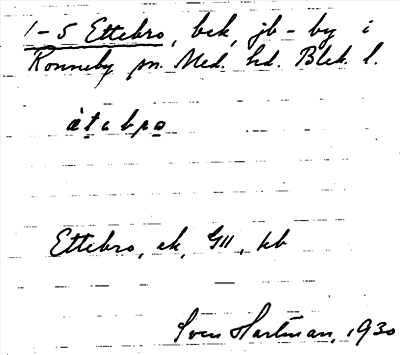 1-5 Ettebro, bek, jb-by i
Ronneby sn. Med. hd. Blek. l.
Ettebro, ek, GII, kb
Sven Hartman, 1930